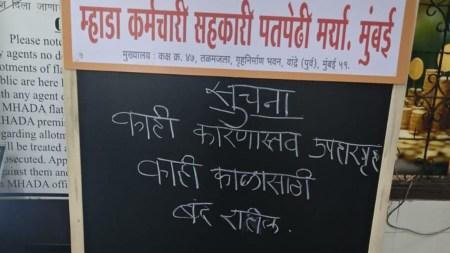 म्हाडा कर्मचारी सहकारी पतपेढी मर्या. मुंबई
मुख्यालय : कक्ष क्र. ४७, तळमजला, गृहनिर्माण भवन, वांद्रे (पुर्व), मुंबई ५१.
सुचना
काही कारणास्तव उपहारगृह
काही काळासाठी
बंद राहील.
दिला जाणा
Please note
y agents no d
otments of fl
ublic are here
ith any agent
MHADA flat
HADA premi
egarding allotm
ill be treated a
osecuted. App
ainst them and
MHADA offi